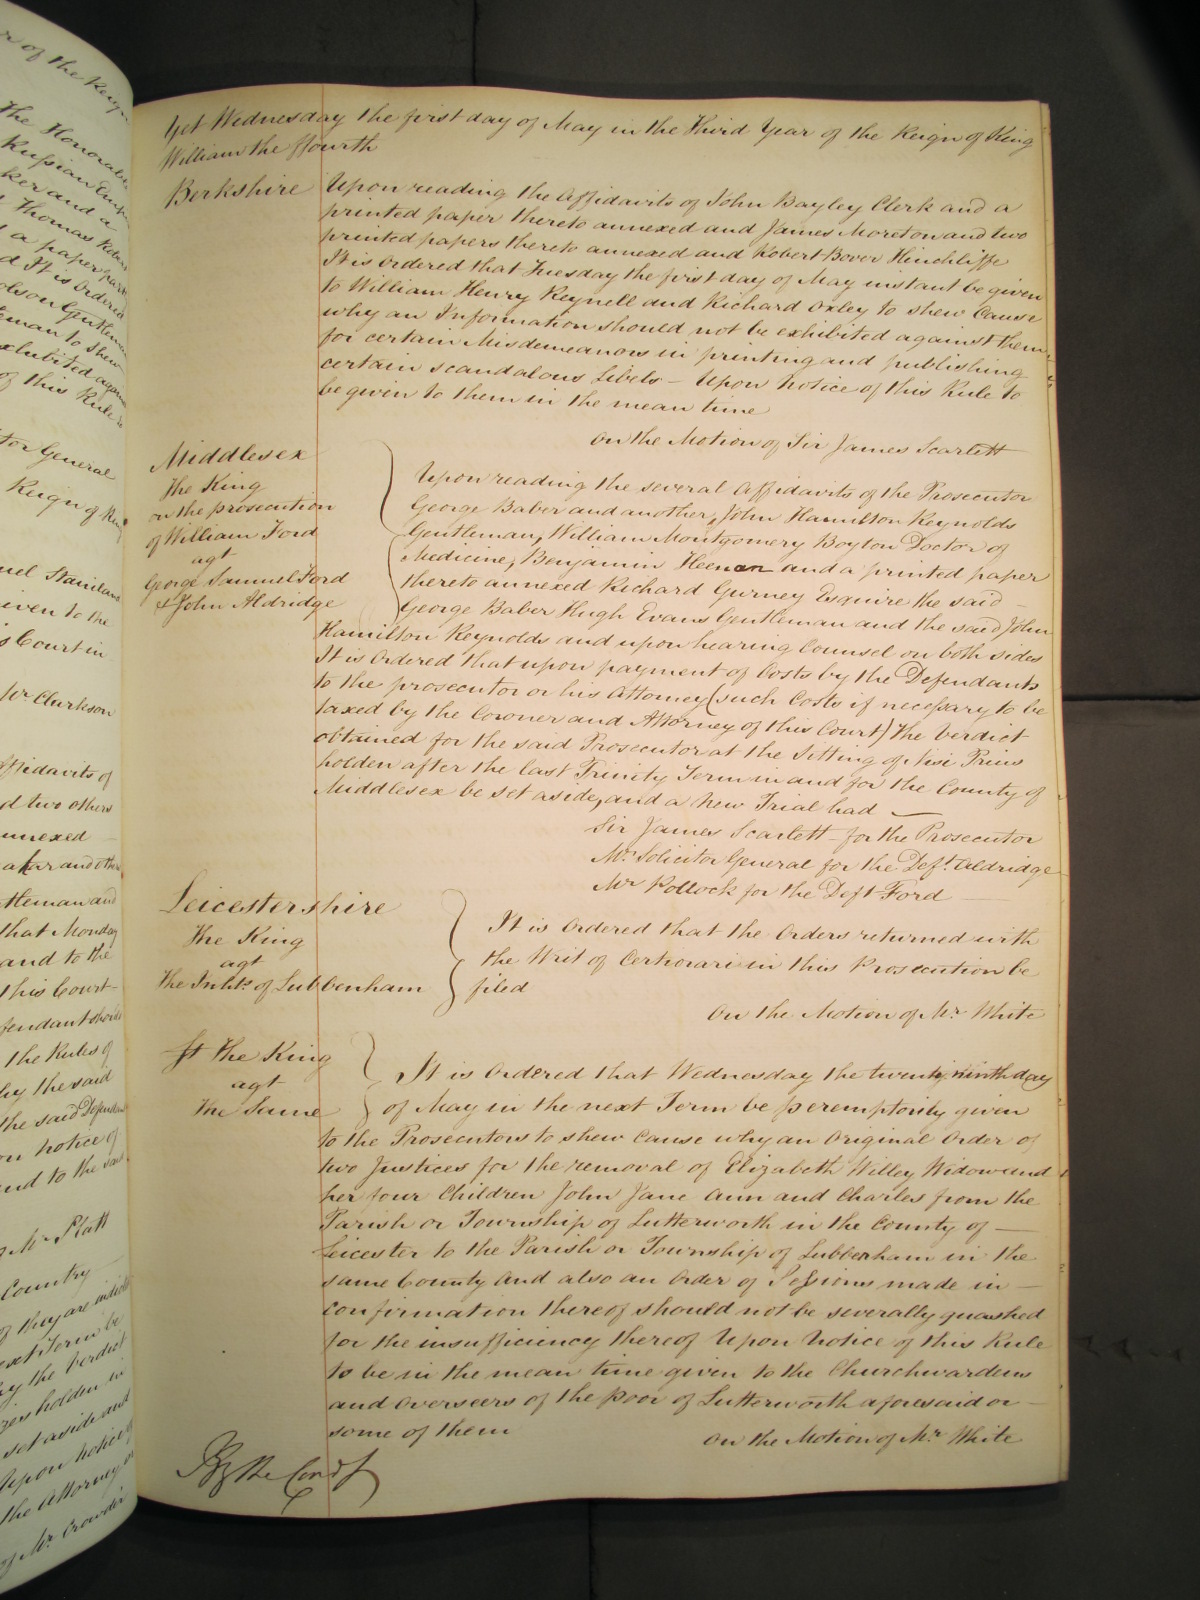 Yet Wednesday the first day of May in the Third Year of the Reign of King
William the ffourth
Berkshire
Upon reading the Affidavits of John Bayley Clerk and a
printed paper thereto annexed and James Moreton and two
printed papers thereto annexed and Robert Bover Hinchliffe
It is Ordered that Tuesday the first day of May instant be given
to William Henry Reynell and Richard Oxley to shew Cause
why an Information should not be exhibited against them
for certain Misdemeanors in printing and publishing
certain scandalous Libels – Upon notice of this Rule to
be given to them in the mean time
On the Motion of Sir James Scarlett
Middlesex
The King
on the prosecution
of William Ford
agt
George Samuel Ford
& John Aldridge
Upon reading the several Affidavits of the Prosecutor
George Baber and another, John Hamilton Reynolds
Gentleman, William Montgomery Boyton Doctor of
Medicine, Benjamin Heenan and a printed paper
thereto annexed Richard Gurney Esquire the said –
George Baber Hugh Evans Gentleman and the said John
Hamilton Reynolds and upon hearing Counsel on both sides
It is Ordered that upon payment of Costs by the Defendants
to the prosecutor or his Attorney (such Costs if necessary to be
taxed by the Coroner and Attorney of this Court) the Verdict
obtained for the said Prosecutor at the Sitting of Nisi Prius
holden after the last Trinity Term in and for the County of
Middlesex be set aside, and a New Trial had —
Sir James Scarlett – for the Prosecutor
Mr Solicitor General for the Deft. Aldridge
Mr Pollock for the Deft Ford
Leicestershire
The King
agt
The Inhts. of Lubbenham
It is Ordered that the Orders returned with
the Writ of Certiorari in this Prosecution be
filed
On the Motion of Mr. White
St The King
agt
The Same
It is Ordered that Wednesday the twenty ninth day
of May in the next Term be peremptorily given
to the Prosecutors to shew Cause why an Original Order of
two Justices for the removal of Elizabeth Willey Widow and
her four Children John Jane Ann and Charles from the
Parish or Township of Lutterworth in the County of —
Leicester to the Parish or Township of Lubbenham in the
same County and also an Order of Sessions made in —
confirmation thereof should not be severally quashed
for the insufficiency thereof Upon Notice of this Rule
to be in the mean time given to the Churchwardens
and Overseers of the Poor of Lutterworth aforesaid or –
some of them
On the Motion of Mr. White
By the Court